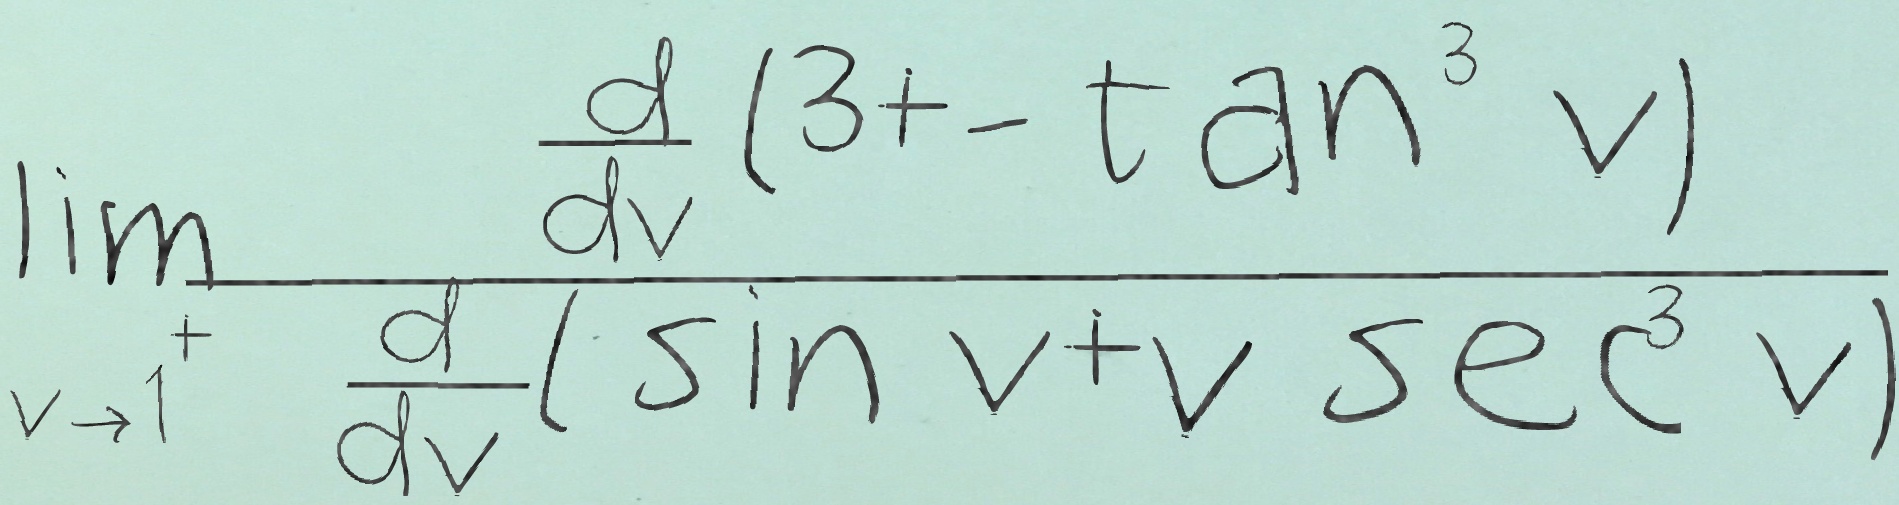 \lim_{v \to 1^+} \frac{\frac{d}{dv}(3+-\tan^3 v)}{\frac{d}{dv}(\sin v+v \sec^3 v)}